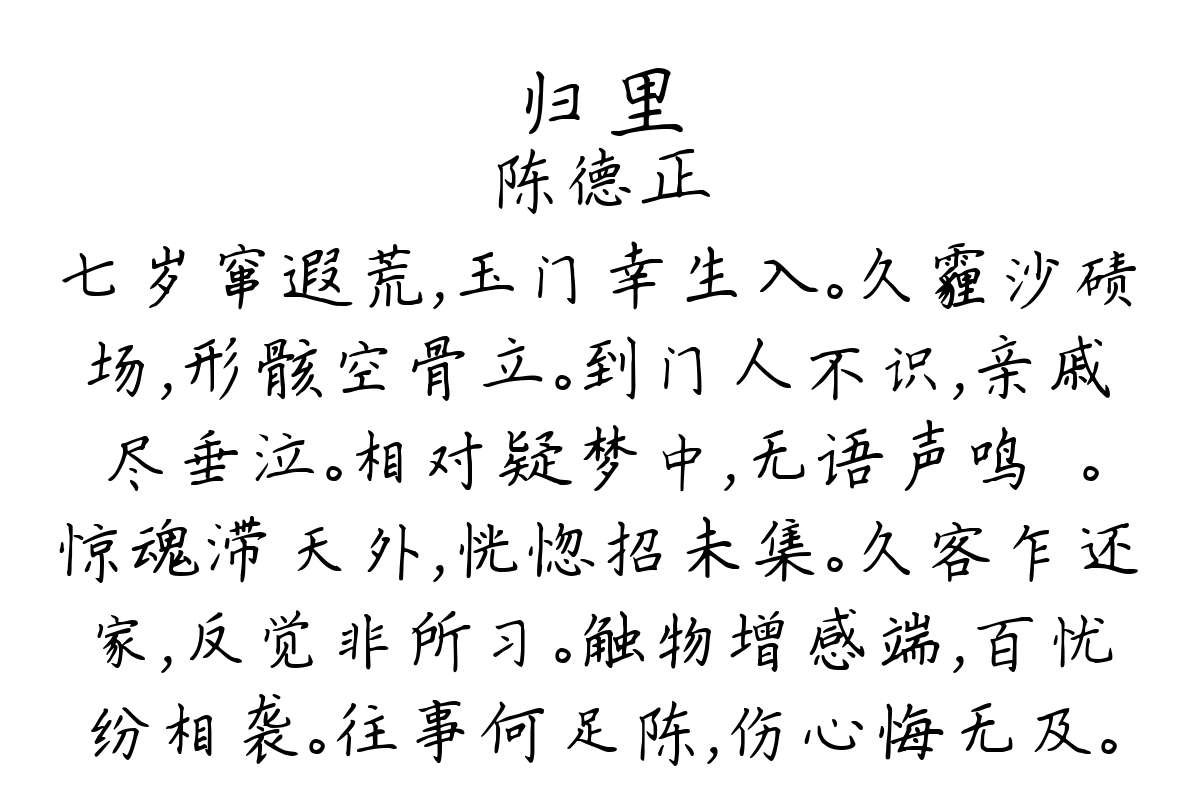 归里
陈德正
七岁窜遐荒,玉门幸生入。久霾沙碛
场,形骸空骨立。到门人不识,亲戚
尽垂泣。相对疑梦中,无语声鸣 。
惊魂滞天外,恍惚招未集。久客乍还
家,反觉非所习。触物增感端,百忧
纷相袭。往事何足陈,伤心悔无及。